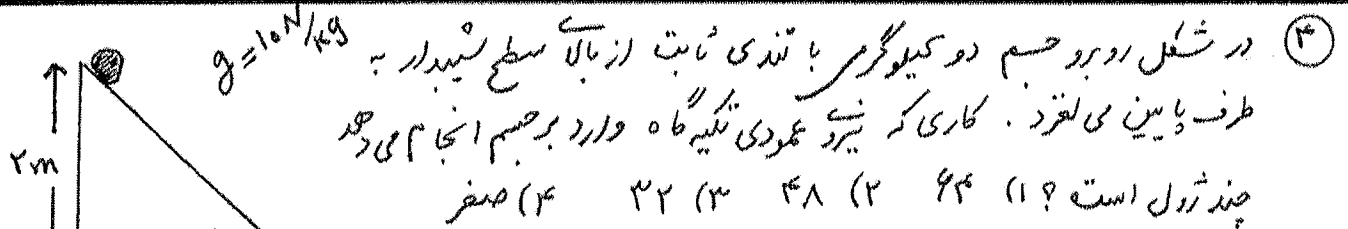 ۴ در شکل روبرو جسم دو کیلوگرمی با تندی ثابت از بالای سطح شیبدار به g=10N/kg
طرف پایین می لغزد . کاری که نیروی عمودی تکیه گاه وارد بر جسم انجام می دهد
چند ژول است ؟ ۱) ۶۴ ۲) ۴۸ ۳) ۳۲ ۴) صفر
۲m